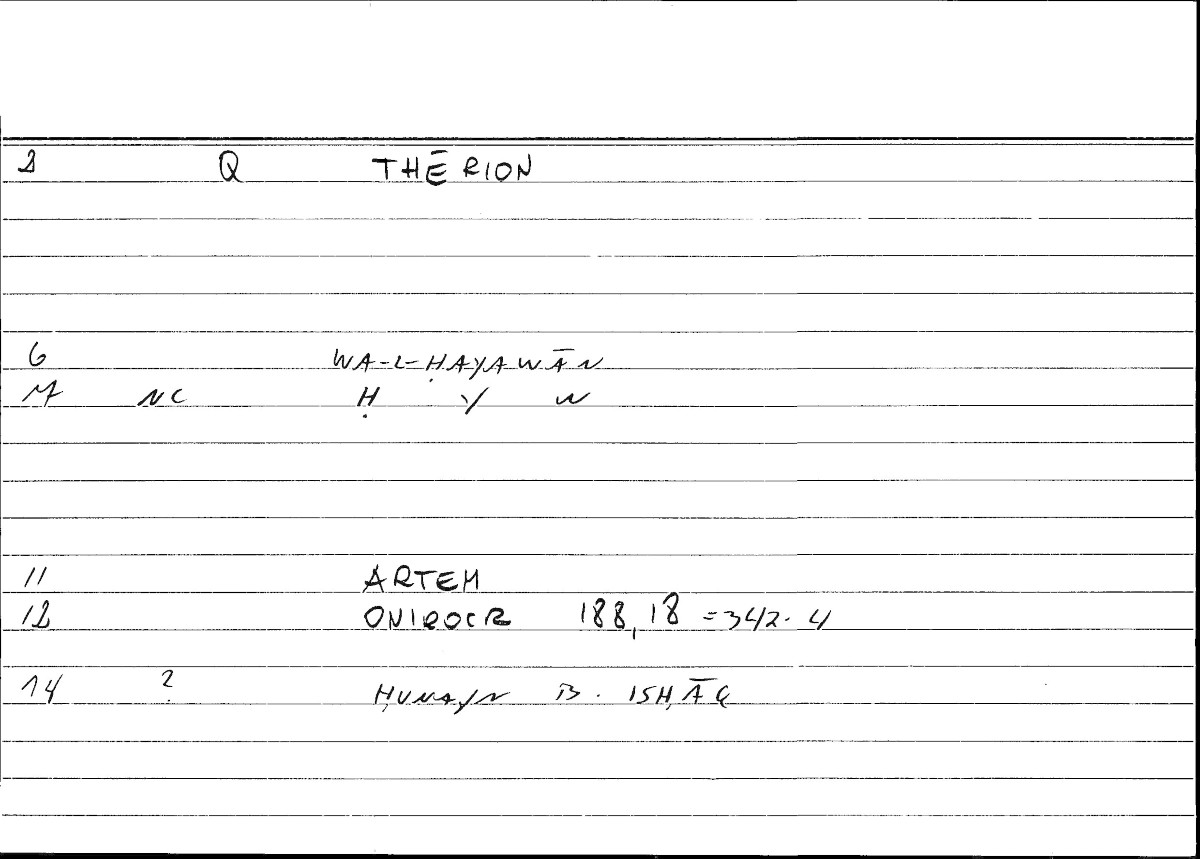 2 Q THĒRION
6 WA-L-ḤAYAWĀN
7 NC Ḥ Y W
11 ARTEM
12 ONIROCR 188,18 =342.4
14 ? ḤUNAYN B. ISḤĀQ